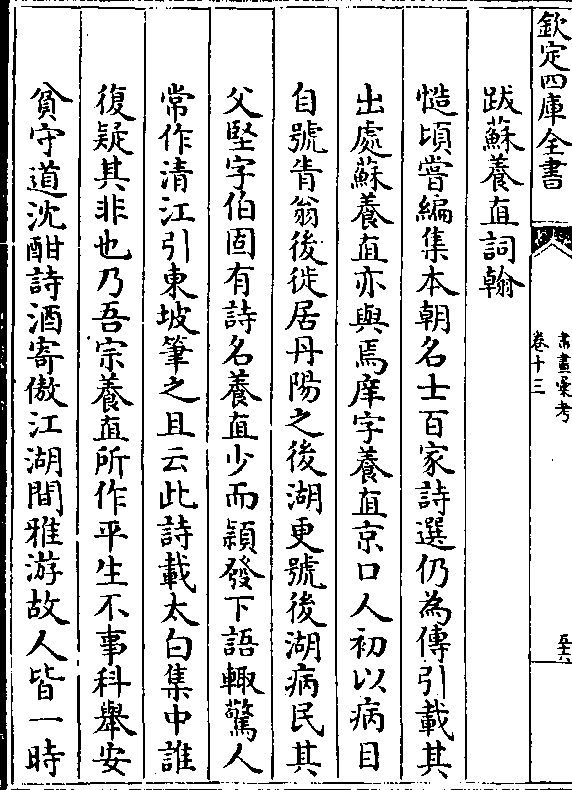 欽定四庫全書
跋蘇養直詞翰
慥頃嘗編集本朝名士百家詩選仍為傳引載其
出處蘇養直亦與焉庠字養直京口人初以病目
自號眚翁後徙居丹陽之後湖更號後湖病民其
父堅字伯固有詩名養直少而穎發下語輙驚人
常作清江引東坡筆之且云此詩載太白集中誰
復疑其非也乃吾宗養直所作平生不事科舉安
貧守道沈酣詩酒寄傲江湖間雅游故人皆一時
書畫彚考
卷十三